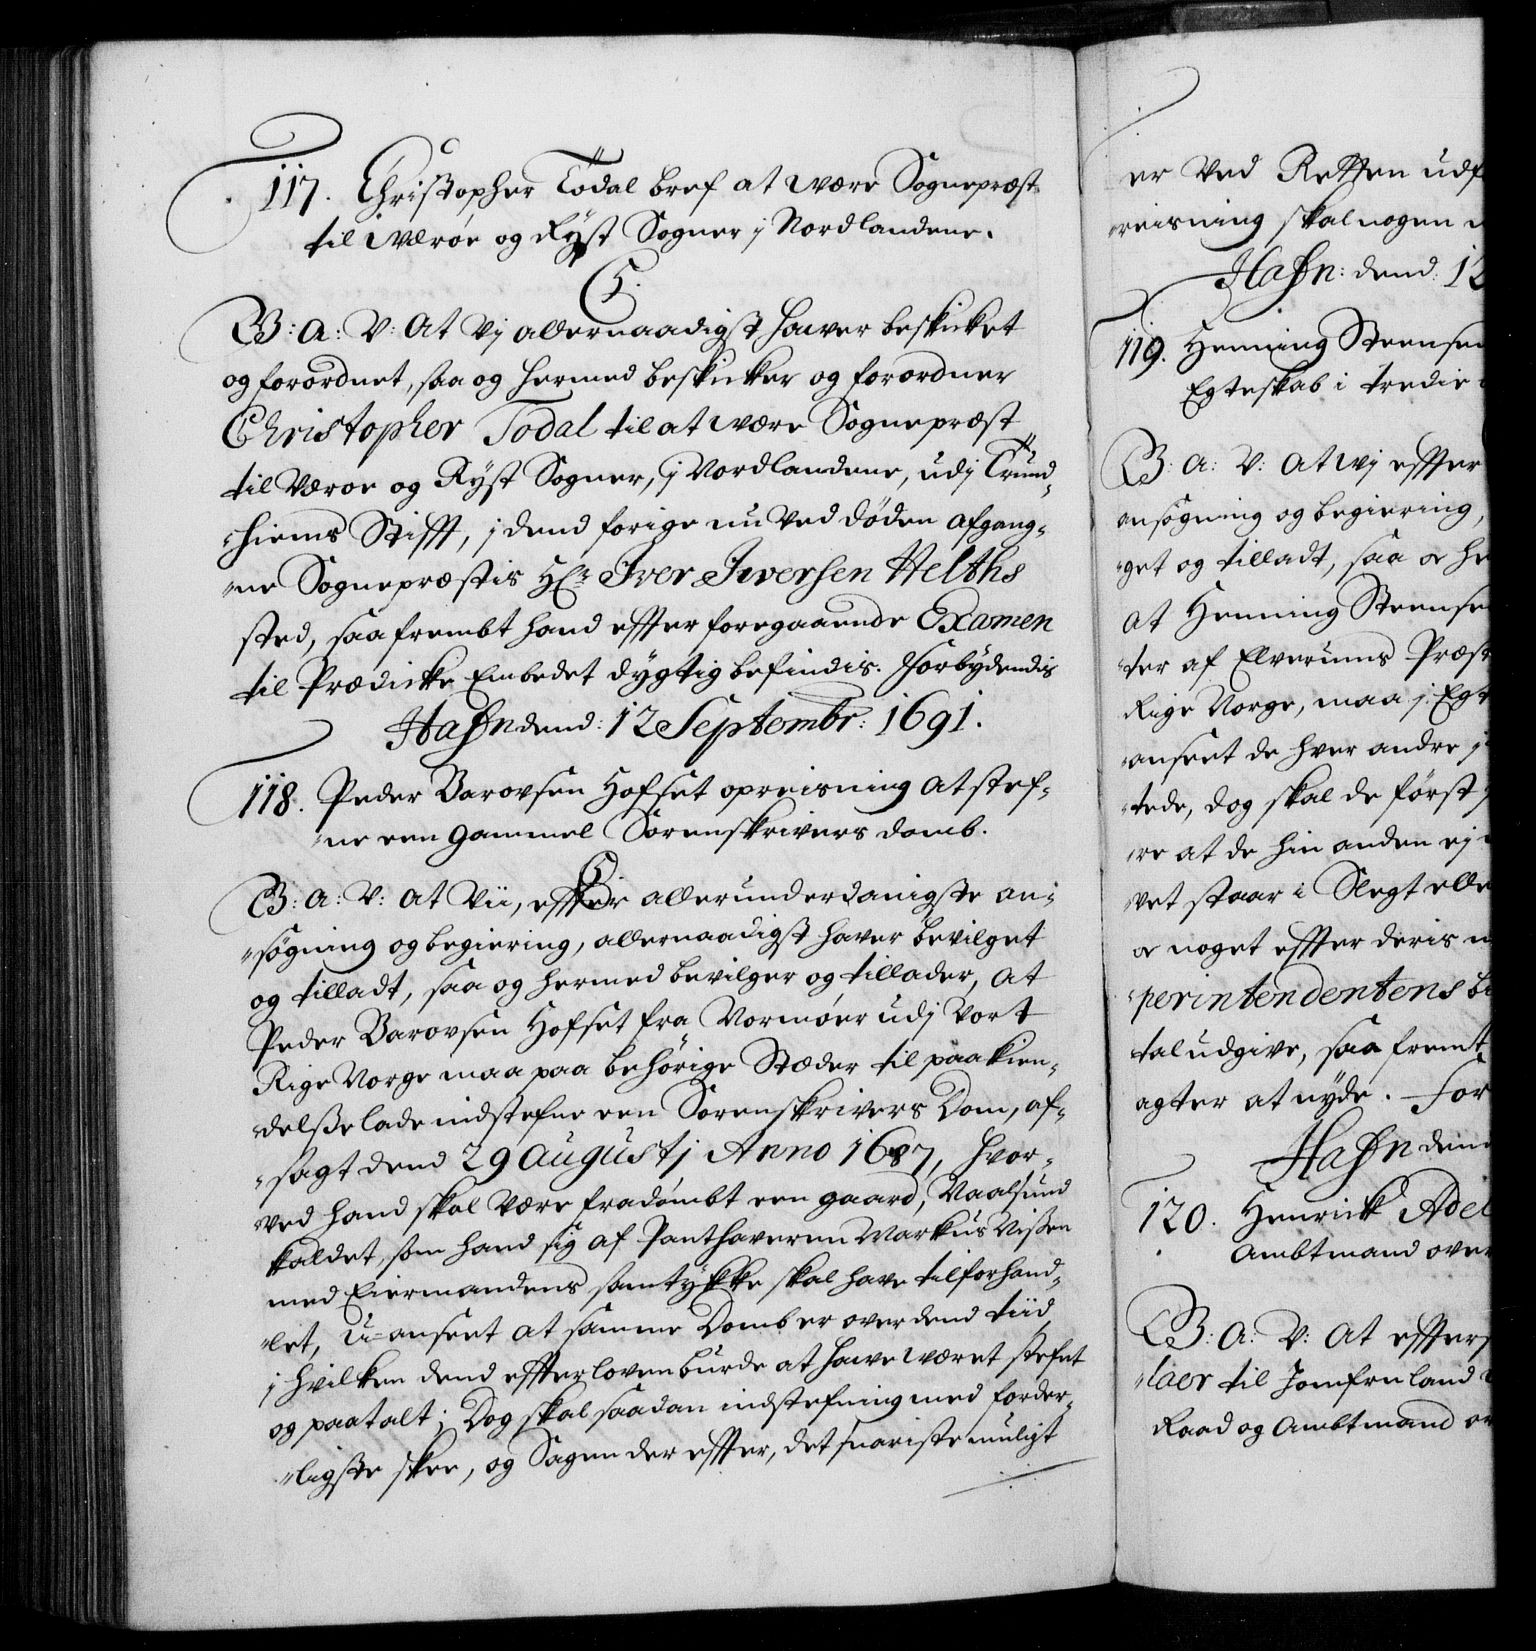 117. Christopher Todal bref at være Sognepræst
til Werøe og Ryst Sogner j Nordlandene.
C5.
G: A: V: At Vj allernaadigst hawer beskicket
og forordnet, saa og hermed beskicker og forordner
Christopher Todal til at være Sognepræst
til Væroe og Ryst Sogner, j Nordlandene, udj Trund„
„hiems Stifft, j dend forige nu ved døden afgang„
„ne Sognepræstis Hr: Iver Iwersen Helths
sted, saa frembt hand effter foregaaende Examen
til Prædicke Embedet dygtig befindis. Forbydendis
Hafn dend: 12 Septembr: 1691.
118. Peder Barovsen Hofset opreisning at stef„
„ne een gammel Sorenskrivers domb.
C5.
G: A: V: At Vii, effter allerunderdanigste an„
„søgning og begiering, allernaadigst haver bevilget
og tilladt, saa og hermed bevilger og tillader, at
Peder Barovsen Hofset fra Normøer udj Vort
Rige Norge maa paa behörige Stæder til paakien„
„delsse lade indstefne een Sorenskrivers Dom, af„
„sagt dend 29 Augustj Anno 1687, hvor„
„ved hand skal være fradömbt een gaard, Vaalsund
kaldet, som hand sig af Panthaveren Markus Nissen
med Eiermandens samtÿkke skal have tilforhand„
„let, U-anseet at samme Domb er over dend tiid,
j hvilken dend effter loven burde at hawe wæret stefnt
og paatalt; Dog skal saadan indstefning med forder„
„ligste skee, og Sagen der effter, det snariste muligt
er ved Retten udf
„reisning skal nogen
Hafn: dend: 12
119. Henning Steensen
Egteskab i tredie
G: A: V: At wj effter
ansøgning og begiering,
„get og tilladt, saa og he
at Henning Steense
„ter af Elverums Præst
Rige Norge, maa j Egt
„anseet de hver andre j
„tede, dog skal de først
„re at de hin anden ej
„vet staar i Slegt elle
og noget effter deris
„perintendentens
tal udgive, saa fremt
agter at nyde. For
Hafn dend
120. Henrick Adel
Ambtmand over
G: A: V: At effters
„laer til Jomfruland
Raad og Ambtmand ov